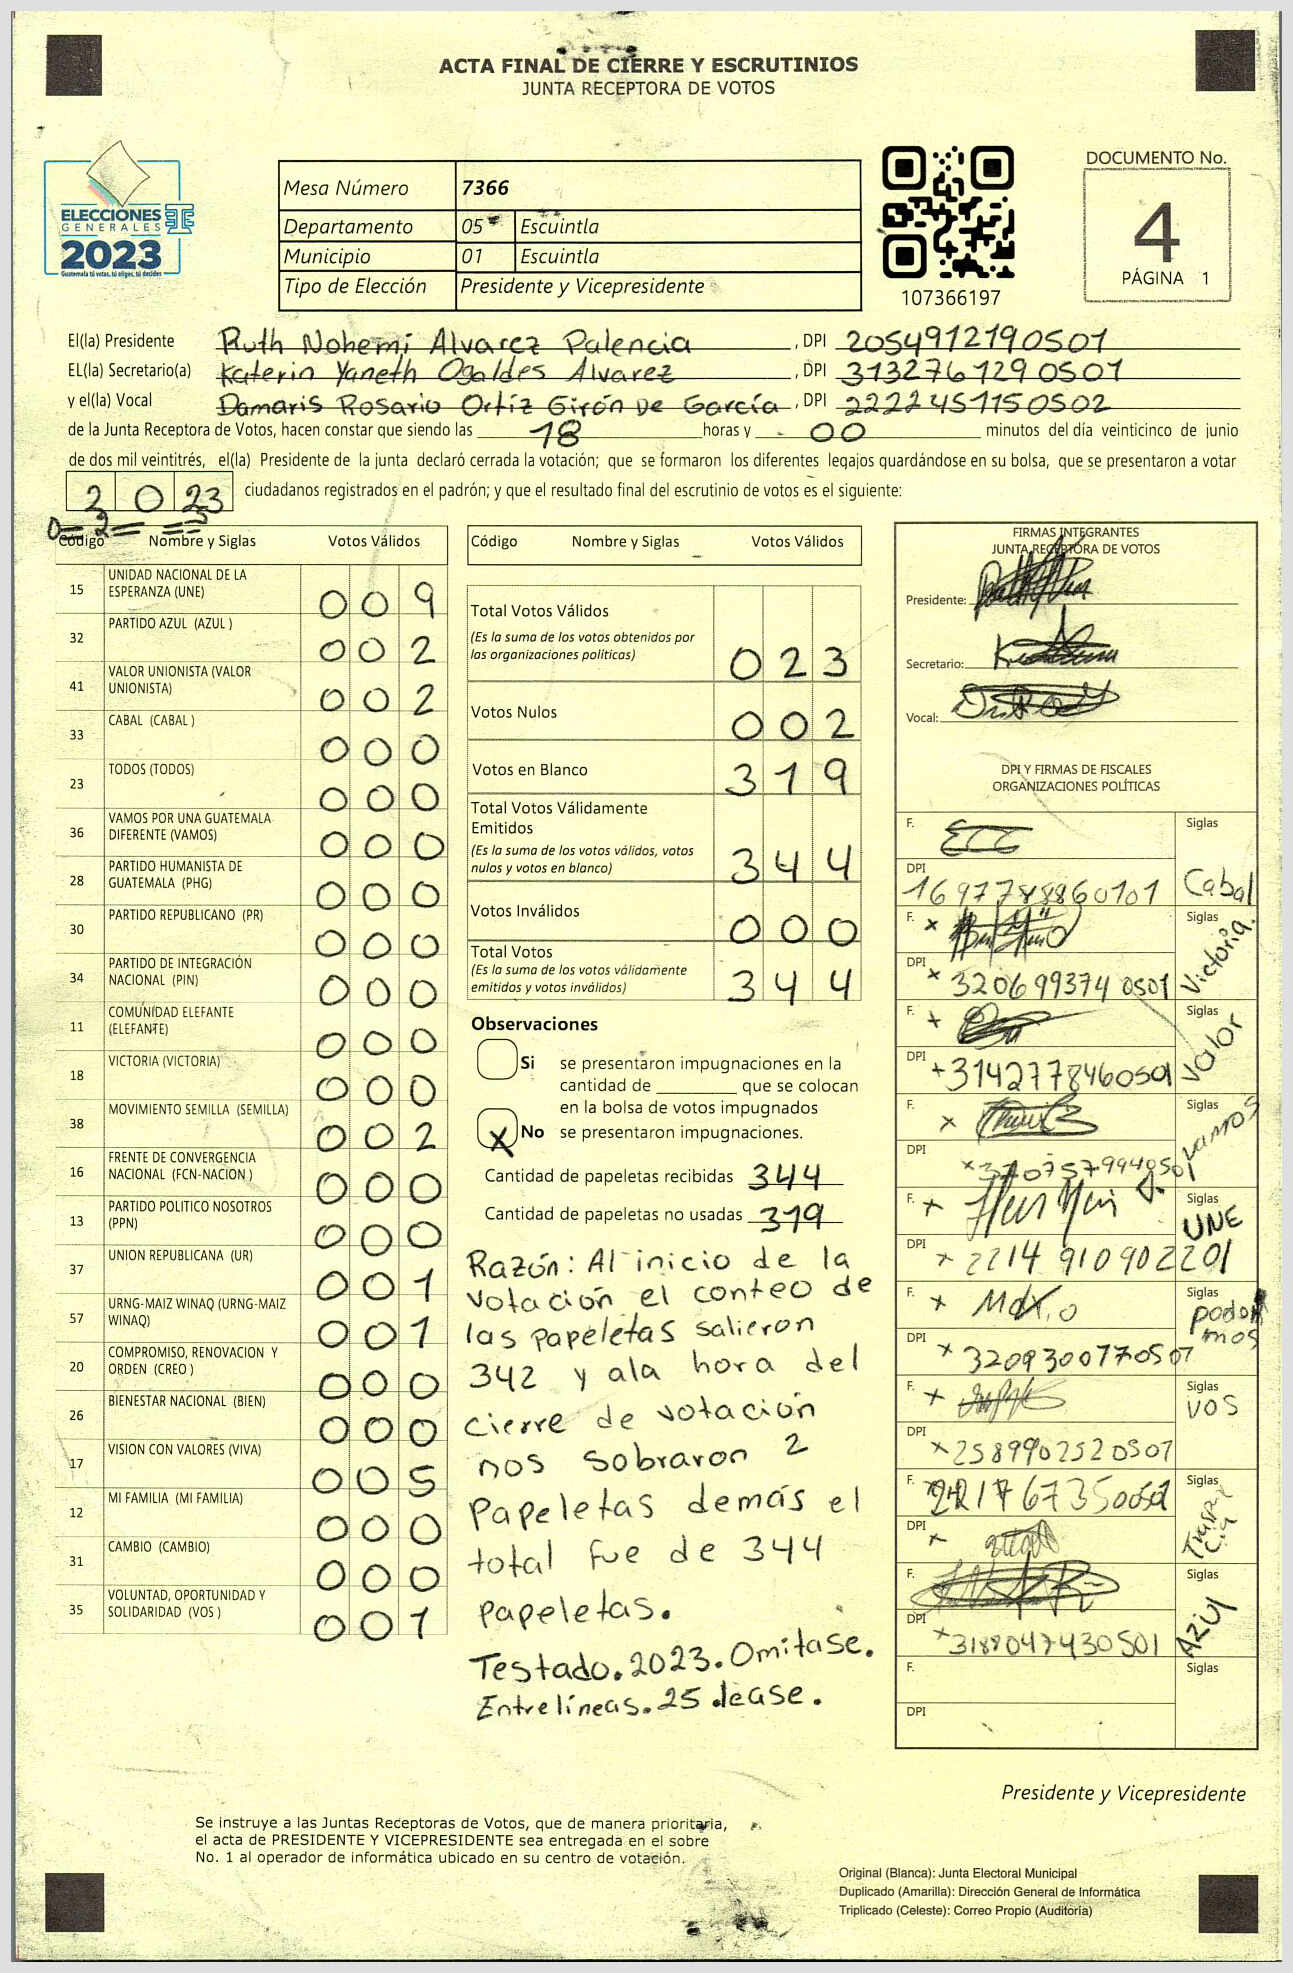 ACTA FINAL DE CIERRE Y ESCRUTINIOS
JUNTA RECEPTORA DE VOTOS
ELECCIONES
GENERALES
2023
Guatemala tú votas, tú eliges, tú decides
Mesa Número 7366
Departamento 05 Escuintla
Municipio 01 Escuintla
Tipo de Elección Presidente y Vicepresidente
107366197
DOCUMENTO No.
4
PÁGINA 1
El(la) Presidente Ruth Nohemi Alvarez Palencia, DPI 2054912190501
EL(la) Secretario(a) Katerin Yaneth Ogaldes Alvarez, DPI 3132761290501
y el(la) Vocal Damaris Rosario Ortiz Girón De García, DPI 2222451150502
de la Junta Receptora de Votos, hacen constar que siendo las 18 horas y 00 minutos del día veinticinco de junio
de dos mil veintitrés, el(la) Presidente de la junta declaró cerrada la votación; que se formaron los diferentes legajos quardándose en su bolsa, que se presentaron a votar
2 0 23 ciudadanos registrados en el padrón; y que el resultado final del escrutinio de votos es el siguiente:
0 2 5
Código Nombre y Siglas Votos Válidos
15 UNIDAD NACIONAL DE LA ESPERANZA (UNE) 0 0 9
32 PARTIDO AZUL (AZUL ) 0 0 2
41 VALOR UNIONISTA (VALOR UNIONISTA) 0 0 2
33 CABAL (CABAL ) 0 0 0
23 TODOS (TODOS) 0 0 0
36 VAMOS POR UNA GUATEMALA DIFERENTE (VAMOS) 0 0 0
28 PARTIDO HUMANISTA DE GUATEMALA (PHG) 0 0 0
30 PARTIDO REPUBLICANO (PR) 0 0 0
34 PARTIDO DE INTEGRACIÓN NACIONAL (PIN) 0 0 0
11 COMUNIDAD ELEFANTE (ELEFANTE) 0 0 0
18 VICTORIA (VICTORIA) 0 0 0
38 MOVIMIENTO SEMILLA (SEMILLA) 0 0 2
16 FRENTE DE CONVERGENCIA NACIONAL (FCN-NACION ) 0 0 0
13 PARTIDO POLITICO NOSOTROS (PPN) 0 0 0
37 UNION REPUBLICANA (UR) 0 0 1
57 URNG-MAIZ WINAQ (URNG-MAIZ WINAQ) 0 0 1
20 COMPROMISO, RENOVACION Y ORDEN (CREO ) 0 0 0
26 BIENESTAR NACIONAL (BIEN) 0 0 0
17 VISION CON VALORES (VIVA) 0 0 5
12 MI FAMILIA (MI FAMILIA) 0 0 0
31 CAMBIO (CAMBIO) 0 0 0
35 VOLUNTAD, OPORTUNIDAD Y SOLIDARIDAD (VOS ) 0 0 1
Código Nombre y Siglas Votos Válidos
Total Votos Válidos
(Es la suma de los votos obtenidos por
las organizaciones políticas) 0 2 3
Votos Nulos 0 0 2
Votos en Blanco 3 1 9
Total Votos Válidamente
Emitidos
(Es la suma de los votos válidos, votos
nulos y votos en blanco) 3 4 4
Votos Inválidos 0 0 0
Total Votos
(Es la suma de los votos válidamente
emitidos y votos inválidos) 3 4 4
Observaciones
Si se presentaron impugnaciones en la
cantidad de ________ que se colocan
en la bolsa de votos impugnados
X No se presentaron impugnaciones.
Cantidad de papeletas recibidas 344
Cantidad de papeletas no usadas 319
Razón: Al inicio de la
votación el conteo de
las papeletas salieron
342 y ala hora del
cierre de votación
nos sobraron 2
Papeletas demás el
total fue de 344
papeletas.
Testado. 2023. Omitase.
Entrelíneas. 25 lease.
FIRMAS INTEGRANTES
JUNTA RECEPTORA DE VOTOS
Presidente:
Secretario:
Vocal:
DPI Y FIRMAS DE FISCALES
ORGANIZACIONES POLÍTICAS
F. Siglas
DPI 1697788860101 Cabal
F. x Siglas
DPI x 3206993740501 Victoria.
F. x Siglas
DPI + 3142778460501 Valor
F. x Siglas
DPI x Vamos
F. x Siglas
DPI x 2214910902201 UNE
F. x Siglas
DPI x 3209300770507 podemos
F. x Siglas
DPI x 2589902520507 VOS
F. Siglas
DPI x
F. Siglas
DPI x 3188047430501 AZUL
F. Siglas
DPI
Presidente y Vicepresidente
Se instruye a las Juntas Receptoras de Votos, que de manera prioritaria,
el acta de PRESIDENTE Y VICEPRESIDENTE sea entregada en el sobre
No. 1 al operador de informática ubicado en su centro de votación.
Original (Blanca): Junta Electoral Municipal
Duplicado (Amarilla): Dirección General de Informática
Triplicado (Celeste): Correo Propio (Auditoría)